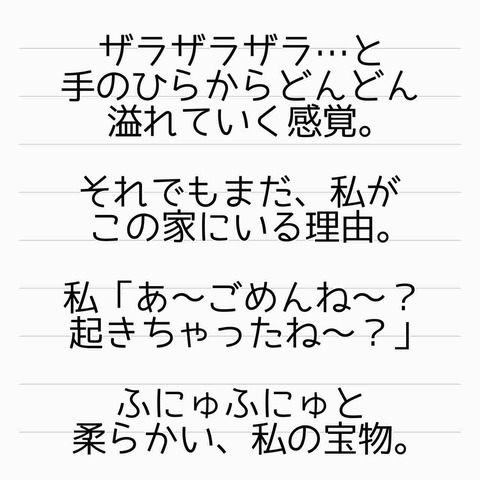 ザラザラザラ…と
手のひらからどんどん
溢れていく感覚。
それでもまだ、私が
この家にいる理由。
私「あ〜ごめんね〜？
起きちゃったね〜？」
ふにゅふにゅと
柔らかい、私の宝物。